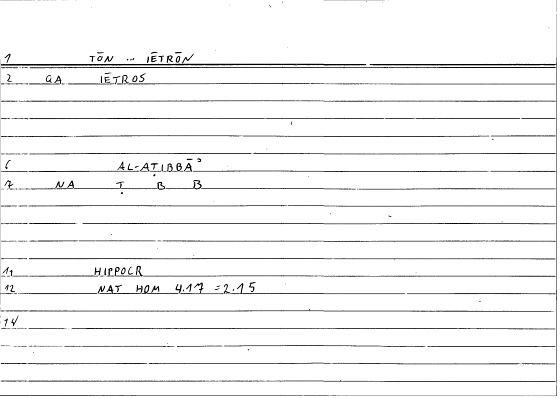 1 TŌN ... IĒTRŌN
2 GA IĒTROS
6 AL-AṬIBBĀʾ
7 NA Ṭ B B
11 HIPPOCR
12 NAT HOM 4.17 = 2.15
14